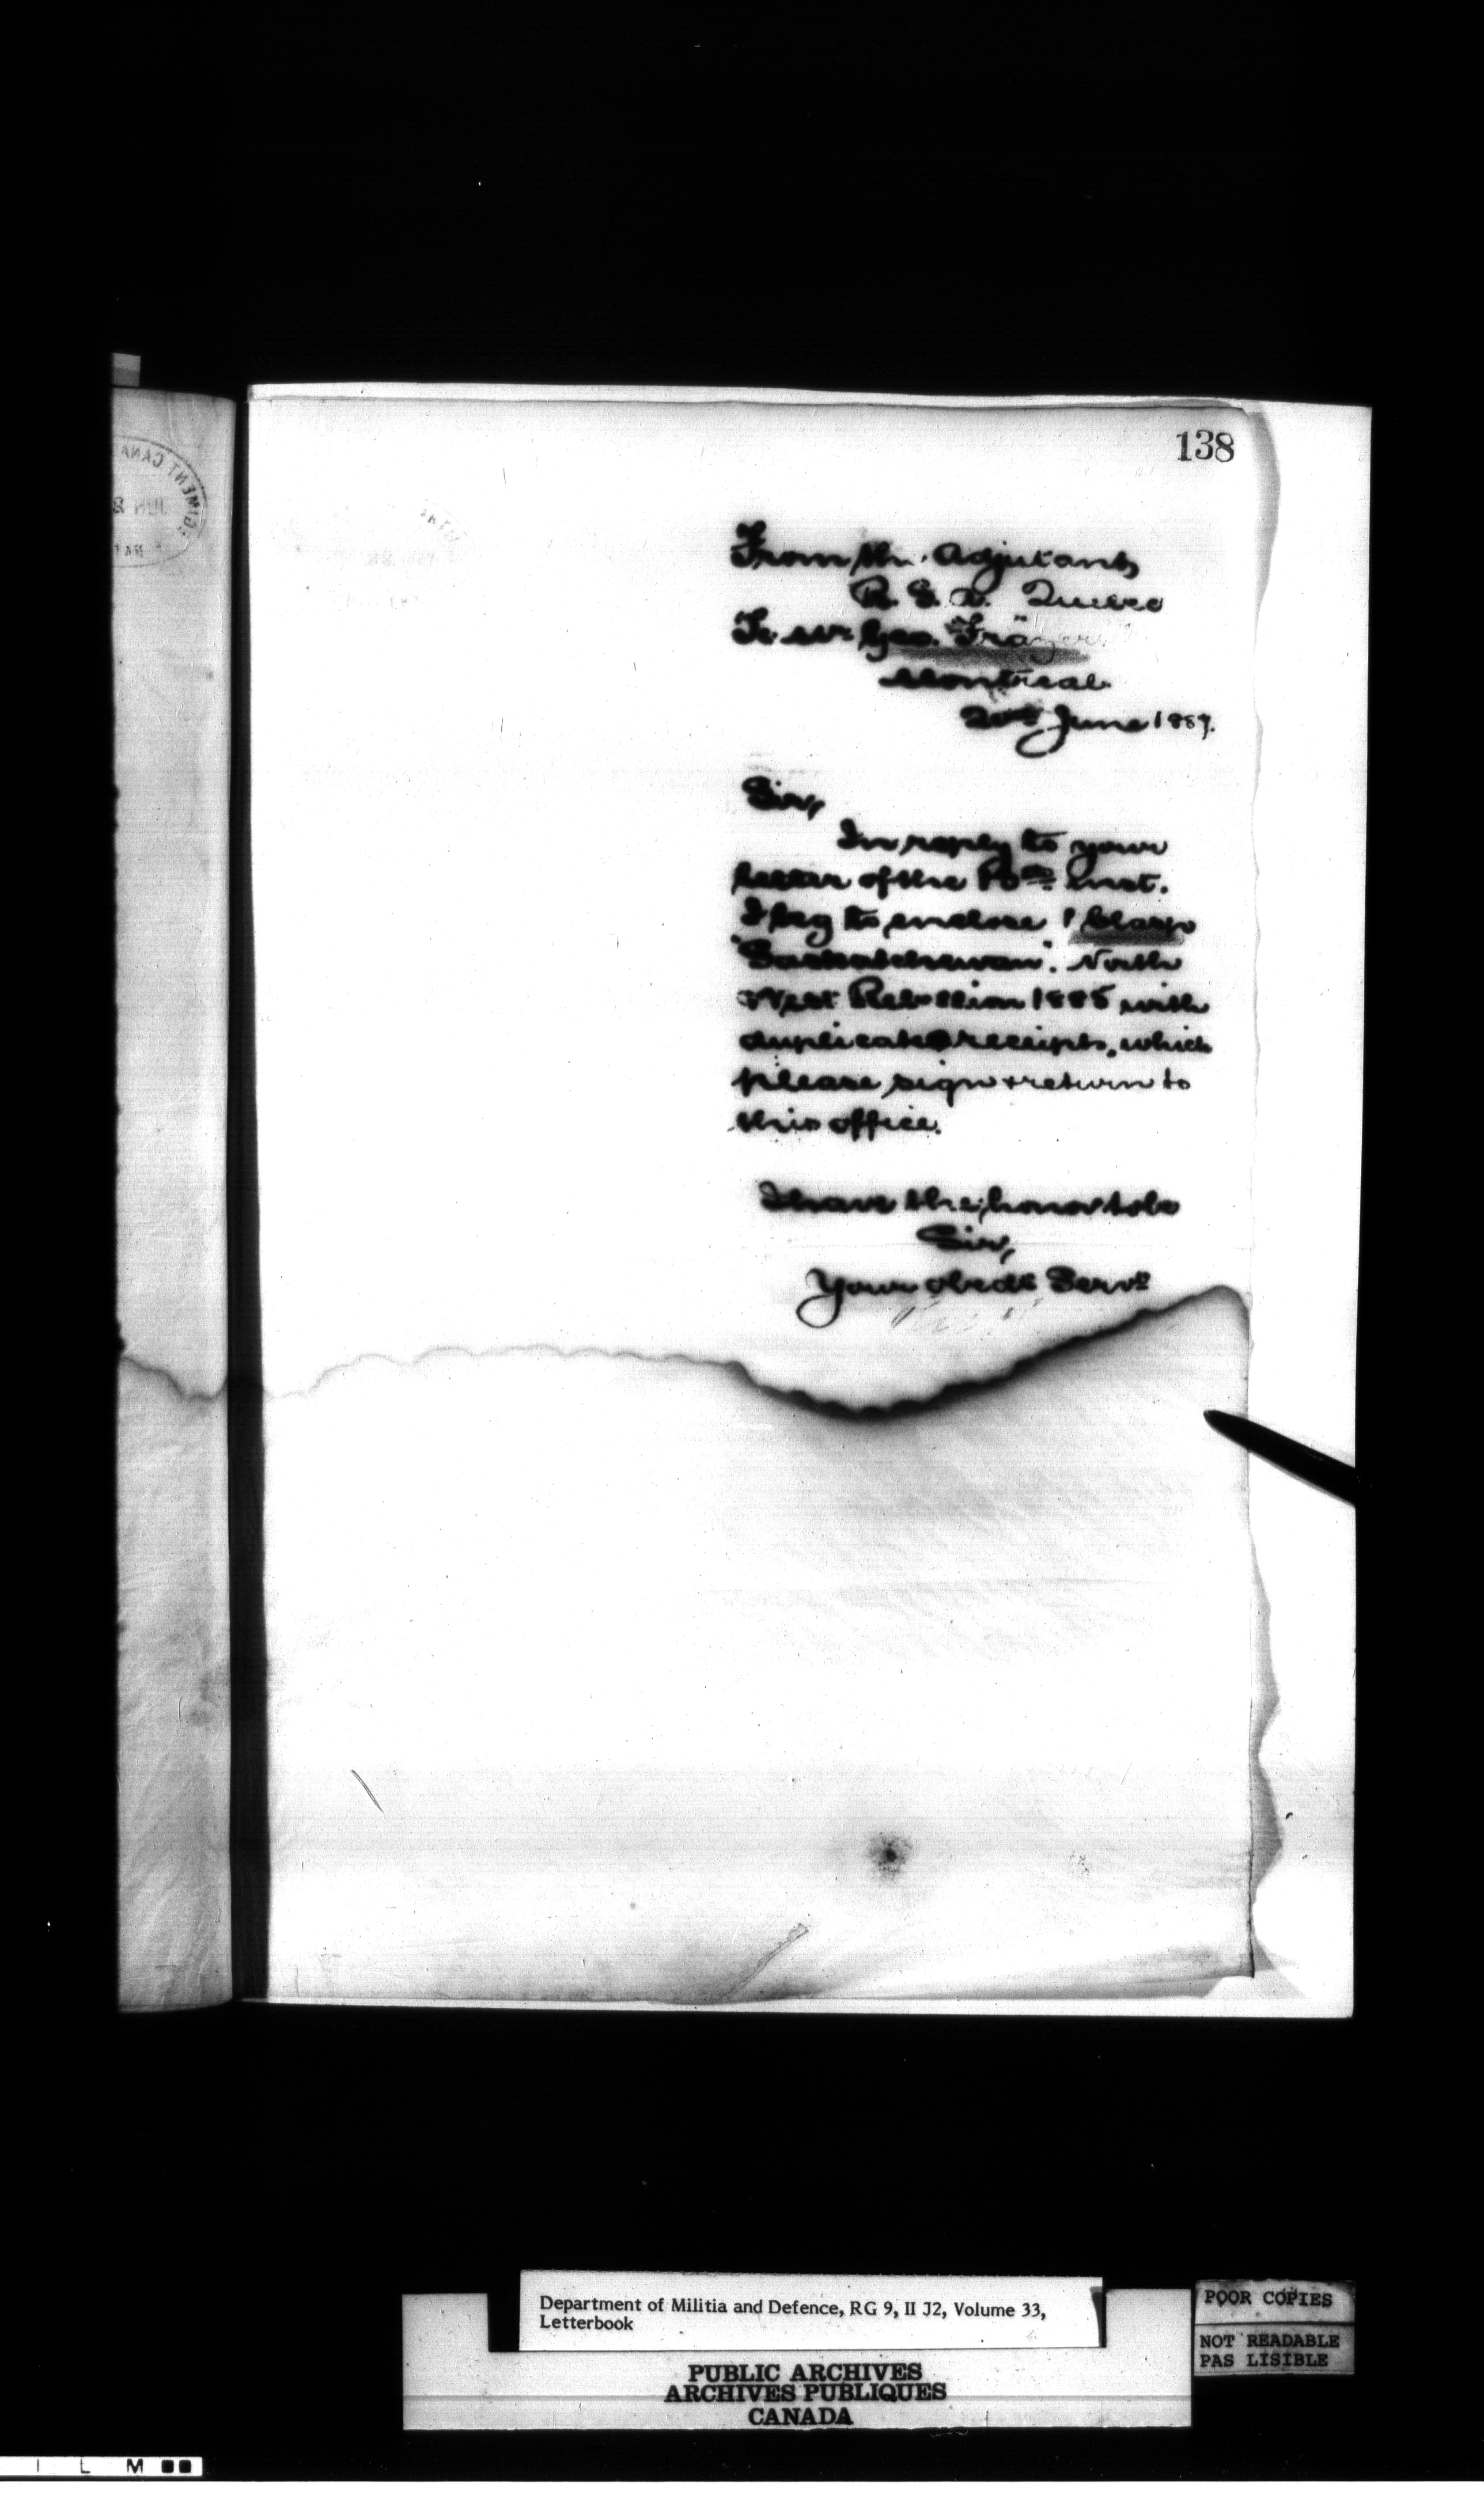 138
From the Adjutant,
R. S. A. Quebec
To Mr Geo. Frazer
Montreal
20th June 1889.
Sir,
In reply to your
letter of the 18th inst.
I beg to enclose 1 Clasp
"Saskatchewan". North
West Rebellion 1885 with
duplicate receipts, which
please sign + return to
this office.
I have the honor to be
Sir,
Your obedt Servt
Department of Militia and Defence, RG 9, II J2, Volume 33,
Letterbook
POOR COPIES
NOT READABLE
PAS LISIBLE
PUBLIC ARCHIVES
ARCHIVES PUBLIQUES
CANADA
I L M